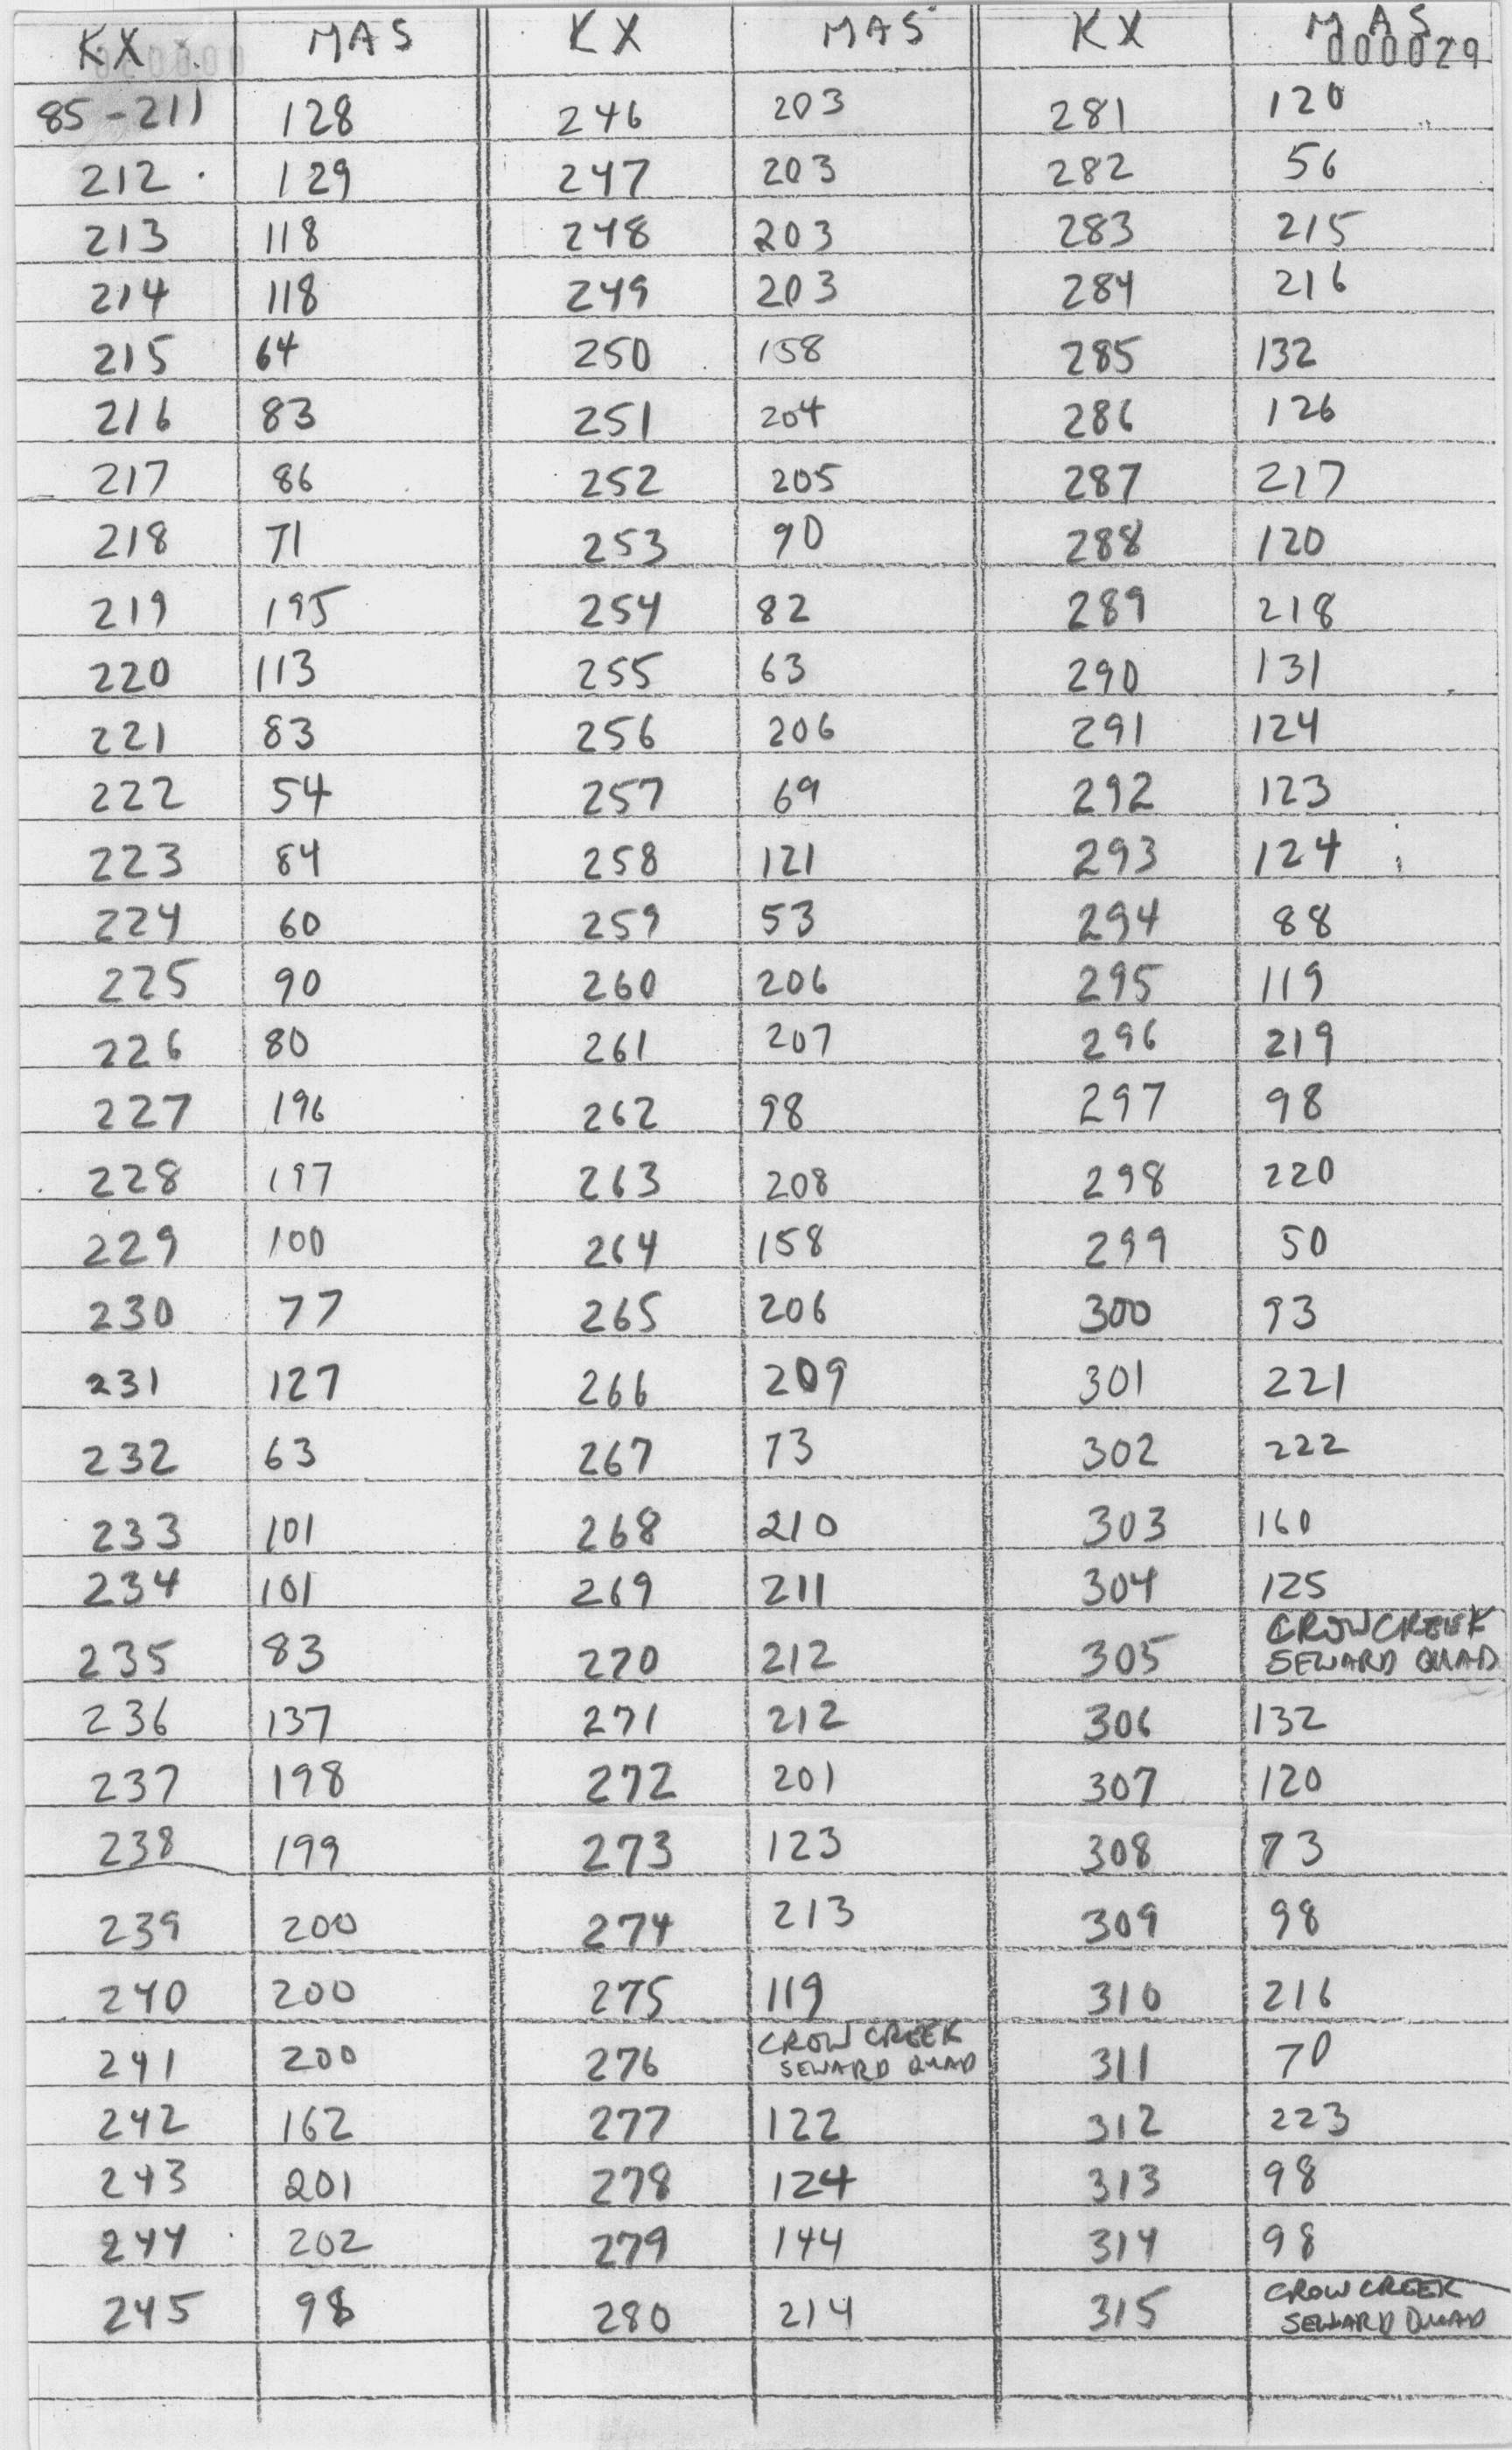 KX MAS KX MAS KX MAS
000029
85-211 128 246 203 281 120
212 129 247 203 282 56
213 118 248 203 283 215
214 118 249 203 284 216
215 64 250 158 285 132
216 83 251 204 286 126
217 86 252 205 287 217
218 71 253 90 288 120
219 195 254 82 289 218
220 113 255 63 290 131
221 83 256 206 291 124
222 54 257 69 292 123
223 84 258 121 293 124
224 60 259 53 294 88
225 90 260 206 295 119
226 80 261 207 296 219
227 196 262 98 297 98
228 197 263 208 298 220
229 100 264 158 299 50
230 77 265 206 300 93
231 127 266 209 301 221
232 63 267 73 302 222
233 101 268 210 303 160
234 101 269 211 304 125
235 83 270 212 305 CROW CREEK
SEWARD QUAD
236 137 271 212 306 132
237 198 272 201 307 120
238 199 273 123 308 73
239 200 274 213 309 98
240 200 275 119 310 216
241 200 276 CROW CREEK 311 70
SEWARD QUAD
242 162 277 122 312 223
243 201 278 124 313 98
244 202 279 144 314 98
245 98 280 214 315 CROW CREEK
SEWARD QUAD